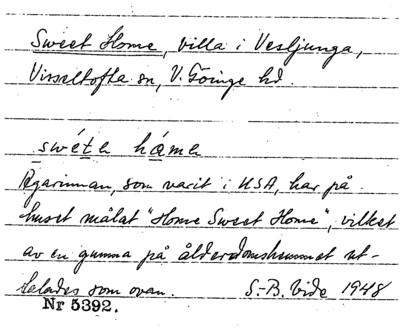 Sweet Home, villa i Vesljunga,
Visseltofta sn, V. Göinge hd.
swéte håme
Ägarinnan, som varit i USA, har på
huset målat "Home Sweet Home", vilket
av en gumma på ålderdomshemmet ut-
talades som ovan. S.-B. Vide 1948
Nr 5392.